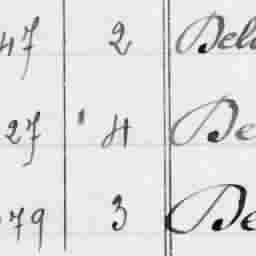 47 2 Bel
27 4 De
79 3 De